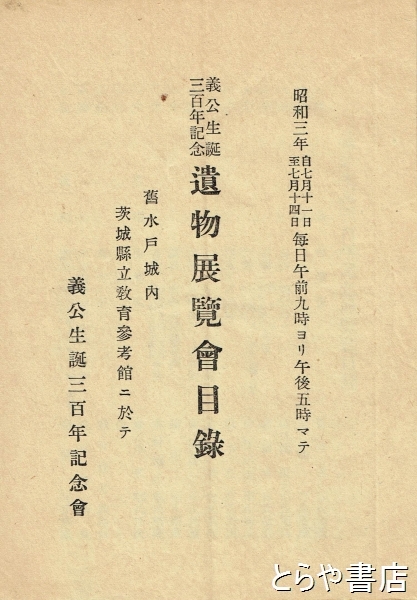 昭和三年 自七月十一日 至七月十四日 每日午前九時ヨリ午後五時マテ
義公生誕三百年記念 遺物展覽會目錄
舊水戸城內
茨城縣立敎育參考館ニ於テ
義公生誕三百年記念會
とらや書店